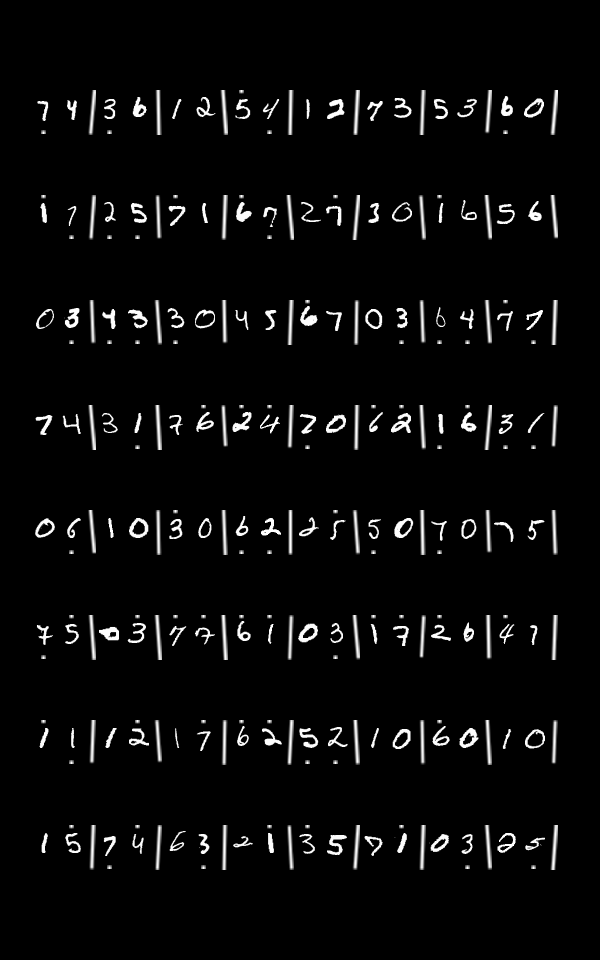 7̣ 4 | 3̣ 6 | 1 2 | 5̇ 4̣ | 1 2 | 7 3 | 5 3 | 6̣ 0 |
1̇ 7̣ | 2̣ 5̣ | 7̇ 1 | 6̇ 7̣ | 2 7̇ | 3 0 | 1̇ 6 | 5 6 |
0 3̣ | 4̣ 3̣ | 3̣ 0 | 4 5 | 6̇ 7 | 0 3̣ | 6̣ 4̣ | 7̇ 7̣ |
7 4 | 3 1̣ | 7 6̇ | 2̇ 4̇ | 2̣ 0 | 6̇ 2̇ | 1̣ 6 | 3̣ 1̣ |
0 6̣ | 1 0 | 3̇ 0 | 6̣ 2̣ | 2 5̇ | 5̣ 0 | 7̣ 0 | 7 5 |
7̣ 5̇ | 0 3̇ | 7̇ 7̇ | 6̇ 1̇ | 0 3̣ | 1̇ 7̇ | 2̇ 6 | 4̇ 7 |
1̇ 1̣ | 1 2̇ | 1 7̇ | 6̇ 2̇ | 5̣ 2̣ | 1 0 | 6̇ 0 | 1 0 |
1 5̇ | 7̣ 4̇ | 6 3̣ | 2 1̇ | 3 5 | 7 1̇ | 0 3̣ | 2 5̣ |